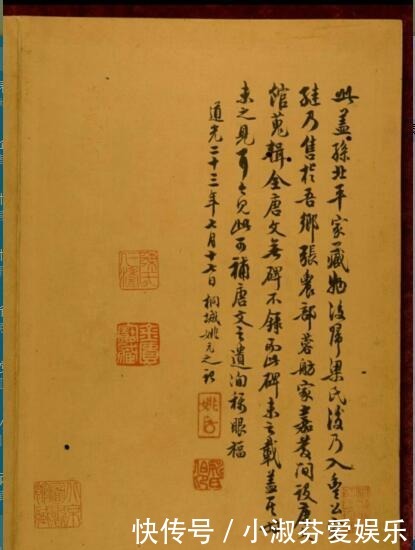 此盖孙北平家藏物后归梁氏后乃入金公
继乃售于吾乡张农部蓉舫家嘉庆间设唐文
馆蒐辑全唐文无碑不录而此碑未之载盖其时
未之见耳今见此可补唐文之遗洵称眼福
道光二十三年七月十七日桐城姚元之记
快传号／小淑芬爱娱乐